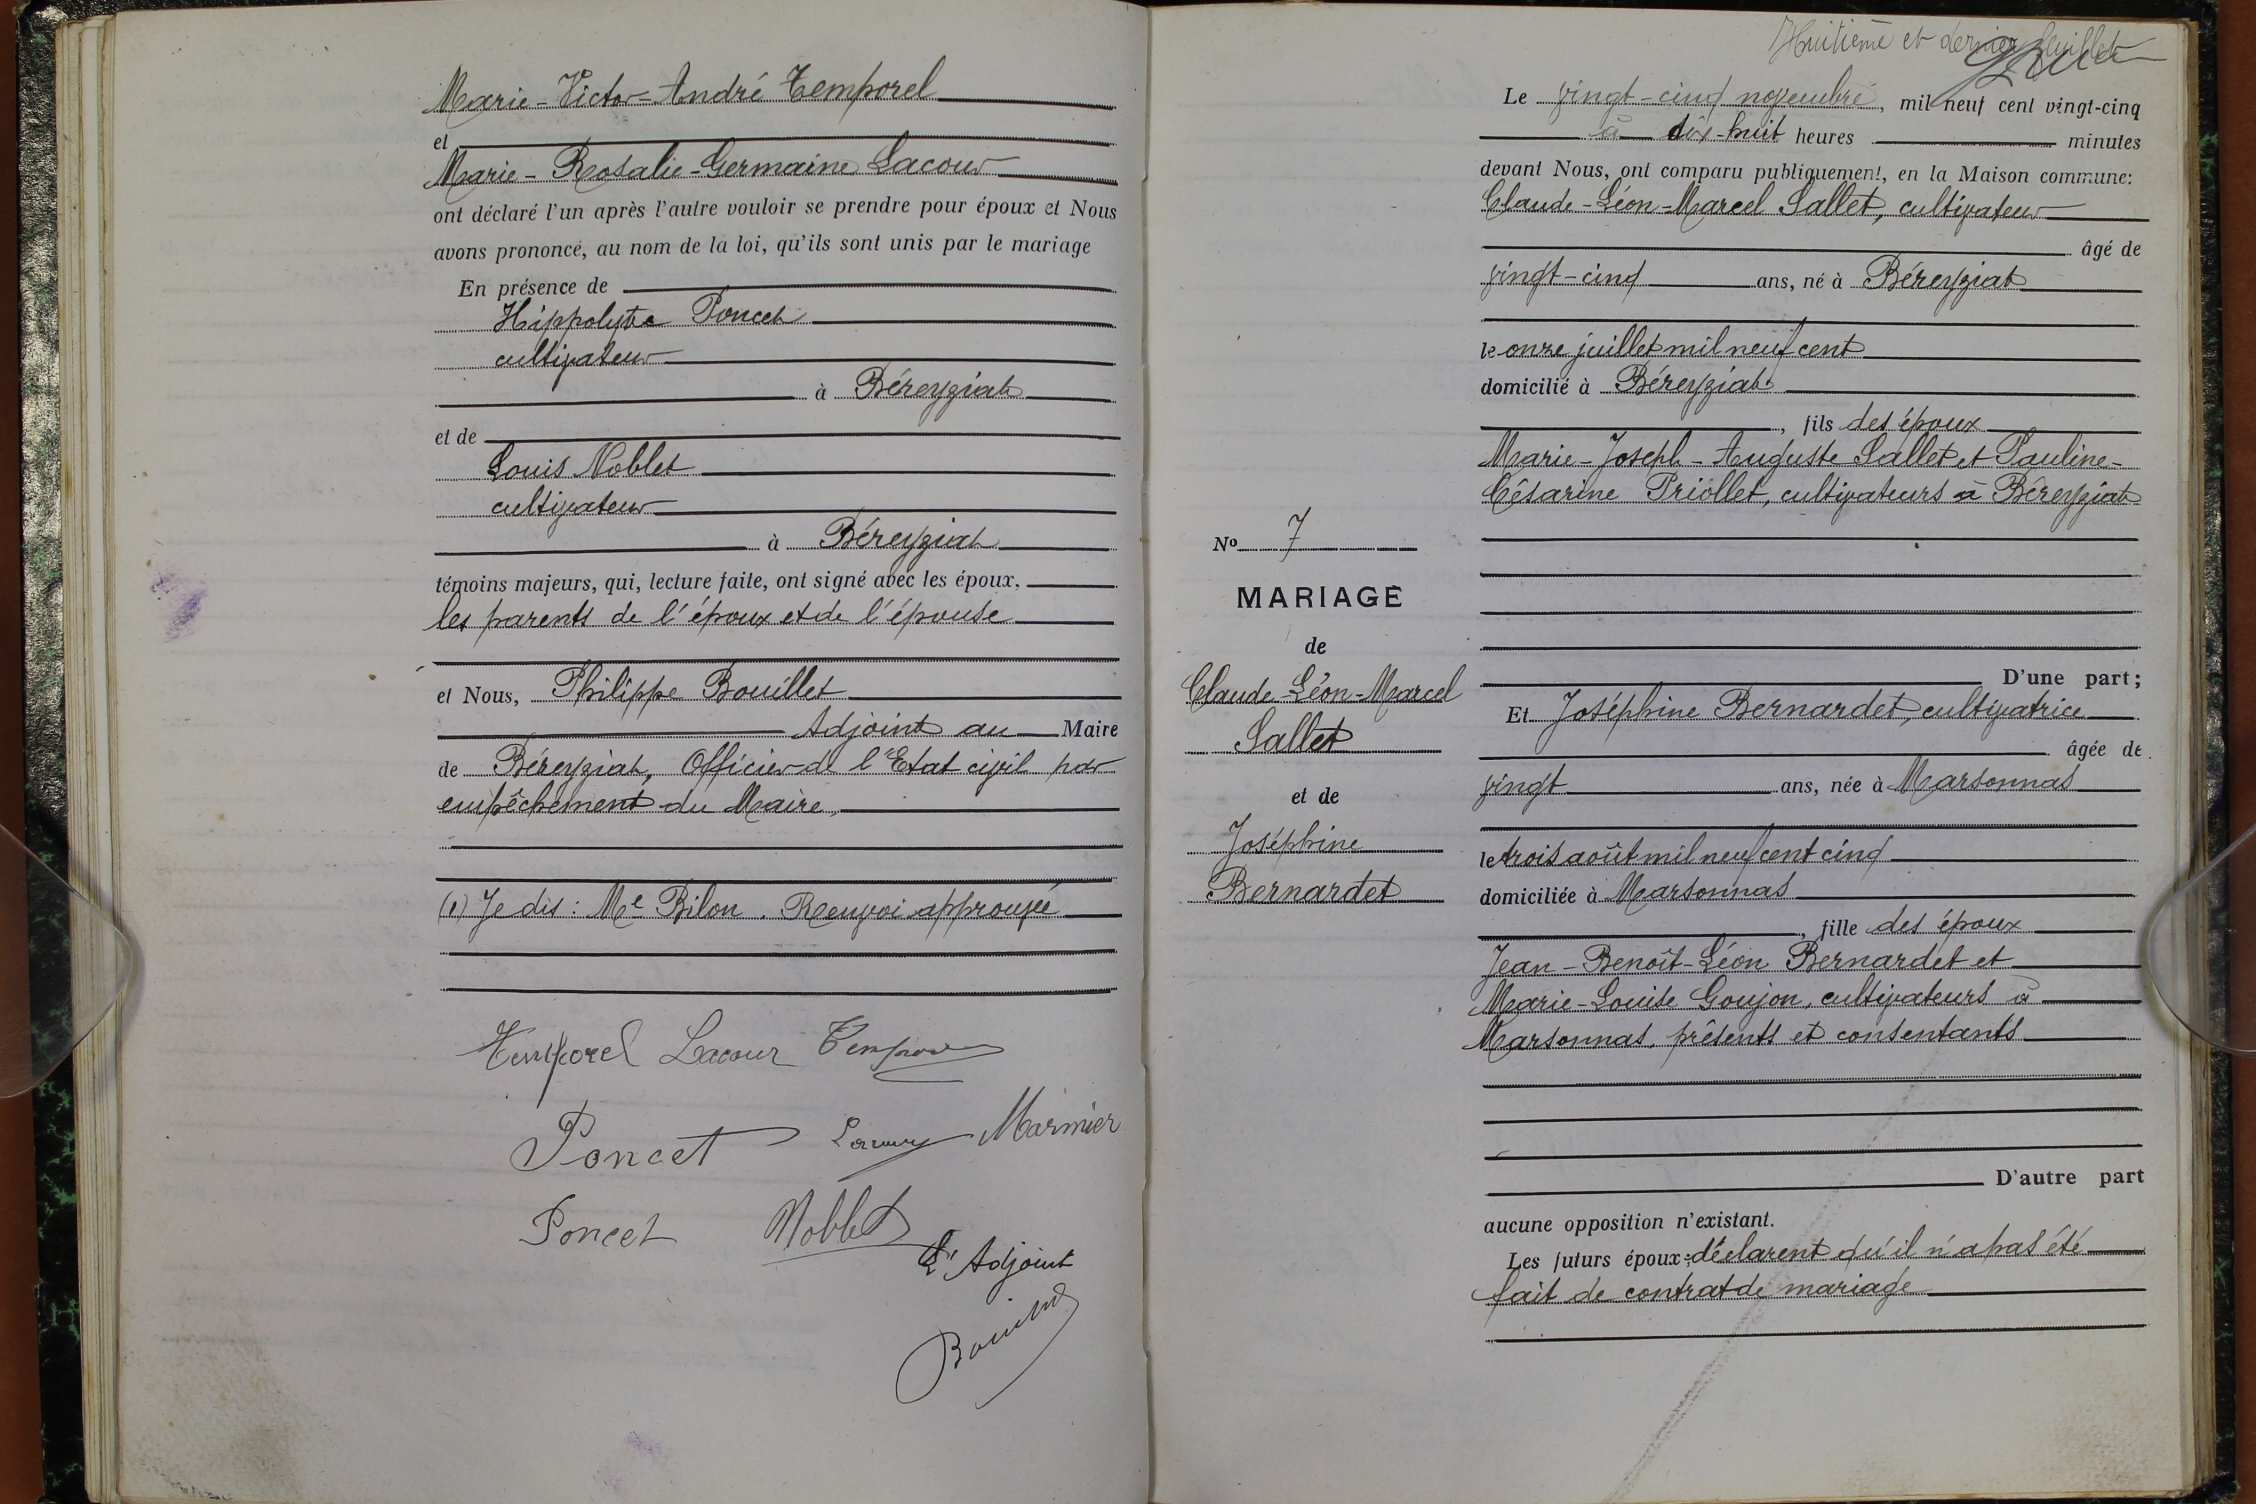 Marie-Victor-André Temporel
et
Marie-Rosalie-Germaine Lacour
ont déclaré l'un après l'autre vouloir se prendre pour époux et Nous
avons prononcé, au nom de la loi, qu'ils sont unis par le mariage
En présence de
Hippolyte Poncet
cultivateur
à Béreyziat
et de
Louis Noblet
cultivateur
à Béreyziat
témoins majeurs, qui, lecture faite, ont signé avec les époux,
les parents de l'époux et de l'épouse
et Nous, Philippe Bouillet
Adjoint au Maire
de Béreyziat, Officier de l'Etat civil par
empêchement du Maire,
(1) Je dis: Me Bilon. Renvoi approuvé
Temporel Lacour Temporel
Poncet Lacour Marmier
Poncet Noblet
L'Adjoint
Bouillet
Huitième et dernier feuillet
Le vingt-cinq novembre, mil neuf cent vingt-cinq
à dix-huit heures minutes
devant Nous, ont comparu publiquement, en la Maison commune:
Claude-Léon-Marcel Sallet, cultivateur
âgé de
vingt-cinq ans, né à Béreyziat
le onze juillet mil neuf cent
domicilié à Béreyziat
, fils des époux
Marie-Joseph-Auguste Sallet et Pauline-
Césarine Priollet, cultivateurs à Béreyziat
D'une part;
Et Joséphine Bernardet, cultivatrice
âgée de
vingt ans, née à Marsonnas
le trois août mil neuf cent cinq
domiciliée à Marsonnas
, fille des époux
Jean-Benoît-Léon Bernardet et
Marie-Louise Goujon, cultivateurs à
Marsonnas, présents et consentants
D'autre part
aucune opposition n'existant.
Les futurs époux déclarent qu'il n'a pas été
fait de contrat de mariage
No 7
MARIAGE
de
Claude-Léon-Marcel
Sallet
et de
Joséphine
Bernardet